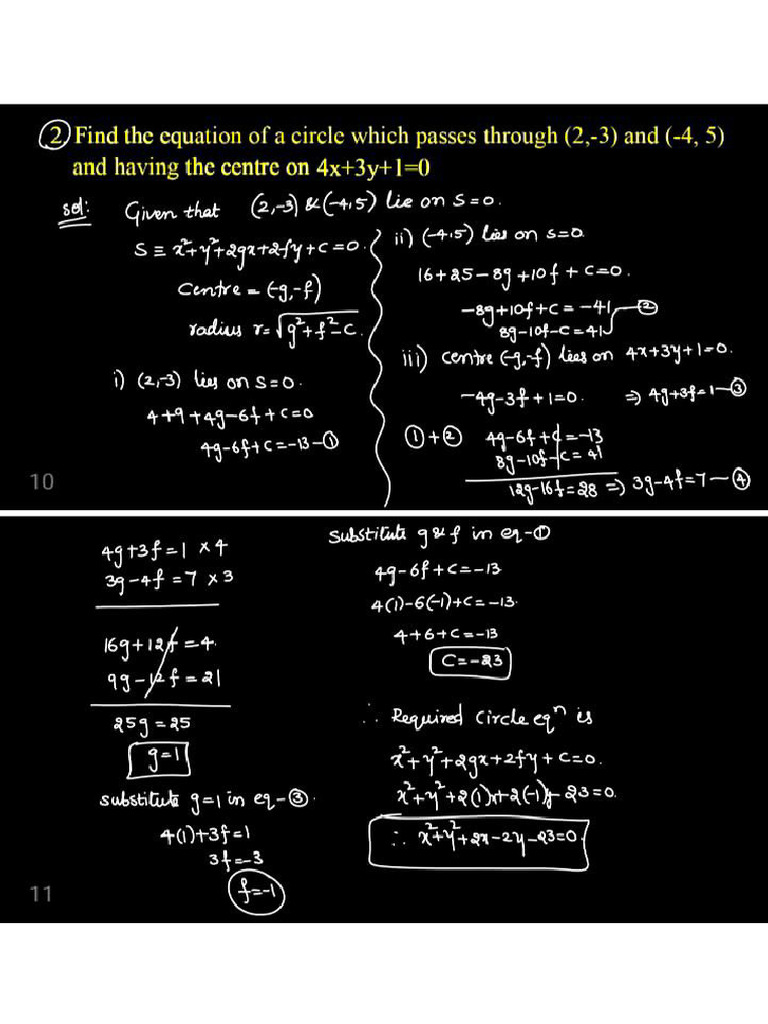 2) Find the equation of a circle which passes through (2,-3) and (-4, 5)
and having the centre on 4x+3y+1=0
Sol: Given that (2,-3) & (-4,5) lie on S=0.
S ≡ x²+y²+2gx+2fy+c=0.
Centre = (-g,-f)
radius r = √g²+f²-c.
i) (2,-3) lies on S=0.
4+9+4g-6f+c=0
4g-6f+c=-13-①
ii) (-4,5) lies on S=0.
16+25-8g+10f+c=0.
-8g+10f+c=-41
8g-10f-c=41 ②
iii) Centre (-g,-f) lies on 4x+3y+1=0.
-4g-3f+1=0. ⇒ 4g+3f=1-③
①+② 4g-6f+c=-13
8g-10f-c=41
12g-16f=28 ⇒ 3g-4f=7-④
10
4g+3f=1 ×4
3g-4f=7 ×3
16g+12f=4.
9g-12f=21
25g=25
g=1
Substitute g=1 in eq-③.
4(1)+3f=1
3f=-3
f=-1
Substitute g & f in eq-①
4g-6f+c=-13
4(1)-6(-1)+c=-13.
4+6+c=-13
C=-23
∴ Required Circle eqⁿ is
x²+y²+2gx+2fy+c=0.
x²+y²+2(1)x+2(-1)y-23=0.
∴ x²+y²+2x-2y-23=0
11